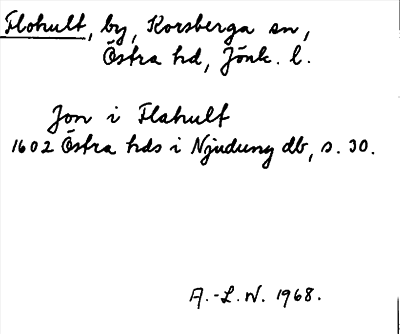 Flohult, by, Korsberga sn,
Östra hd, Jönk. l.
Jon i Flahult
1602 Östra hds i Njudung db, s. 30.
A.-L. W. 1968.